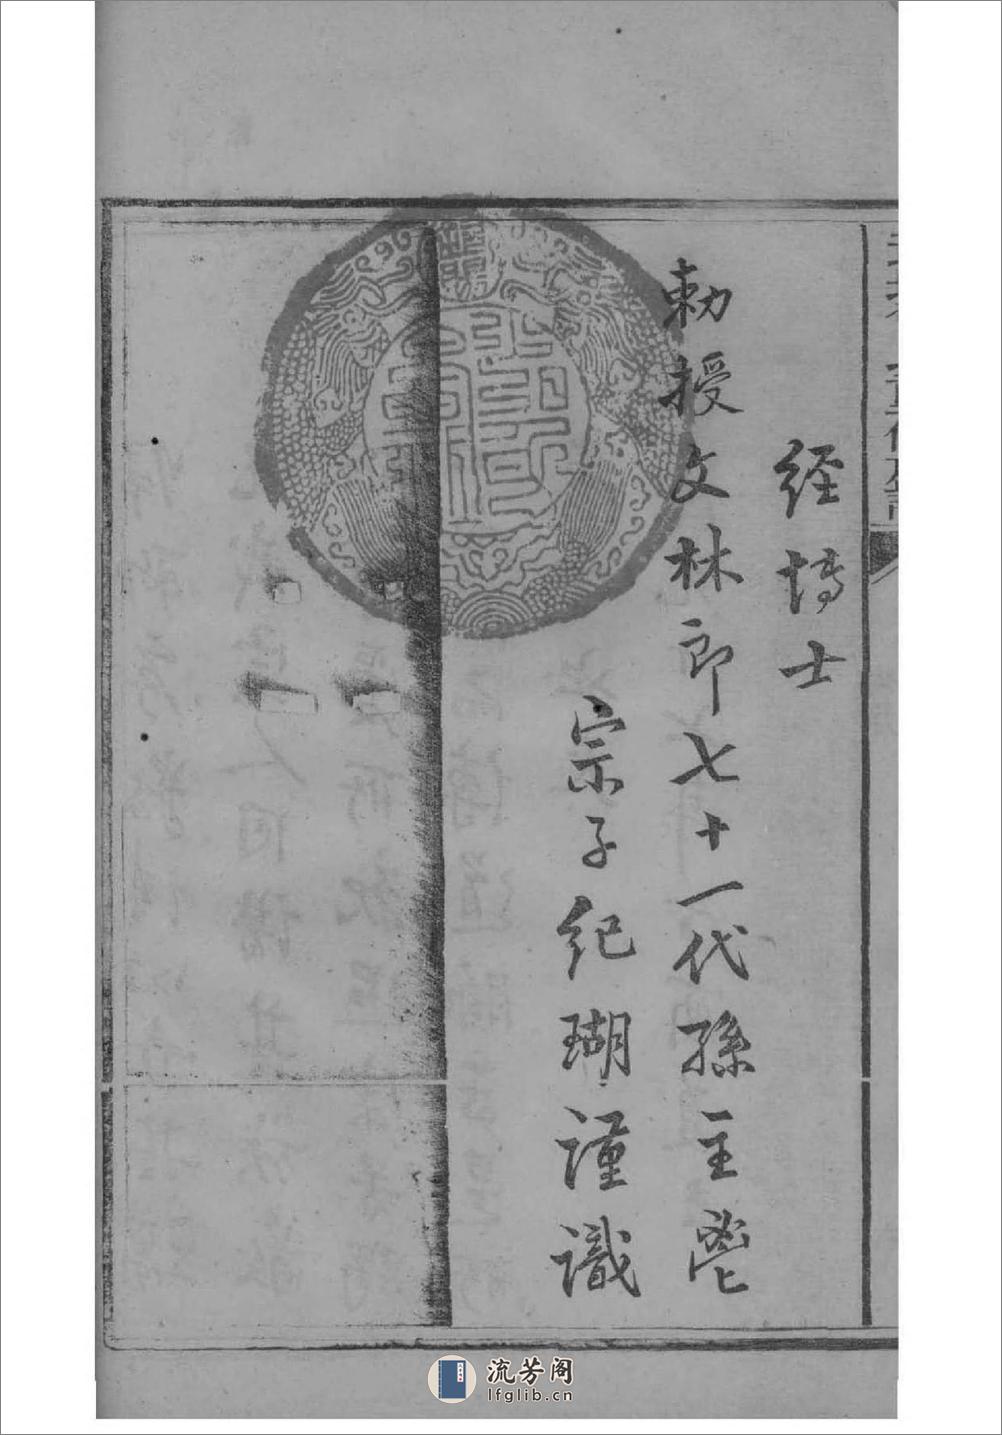 經博士
勅授文林郎七十一代孫主鬯
宗子紀瑚謹識
流芳阁
lfglib.cn